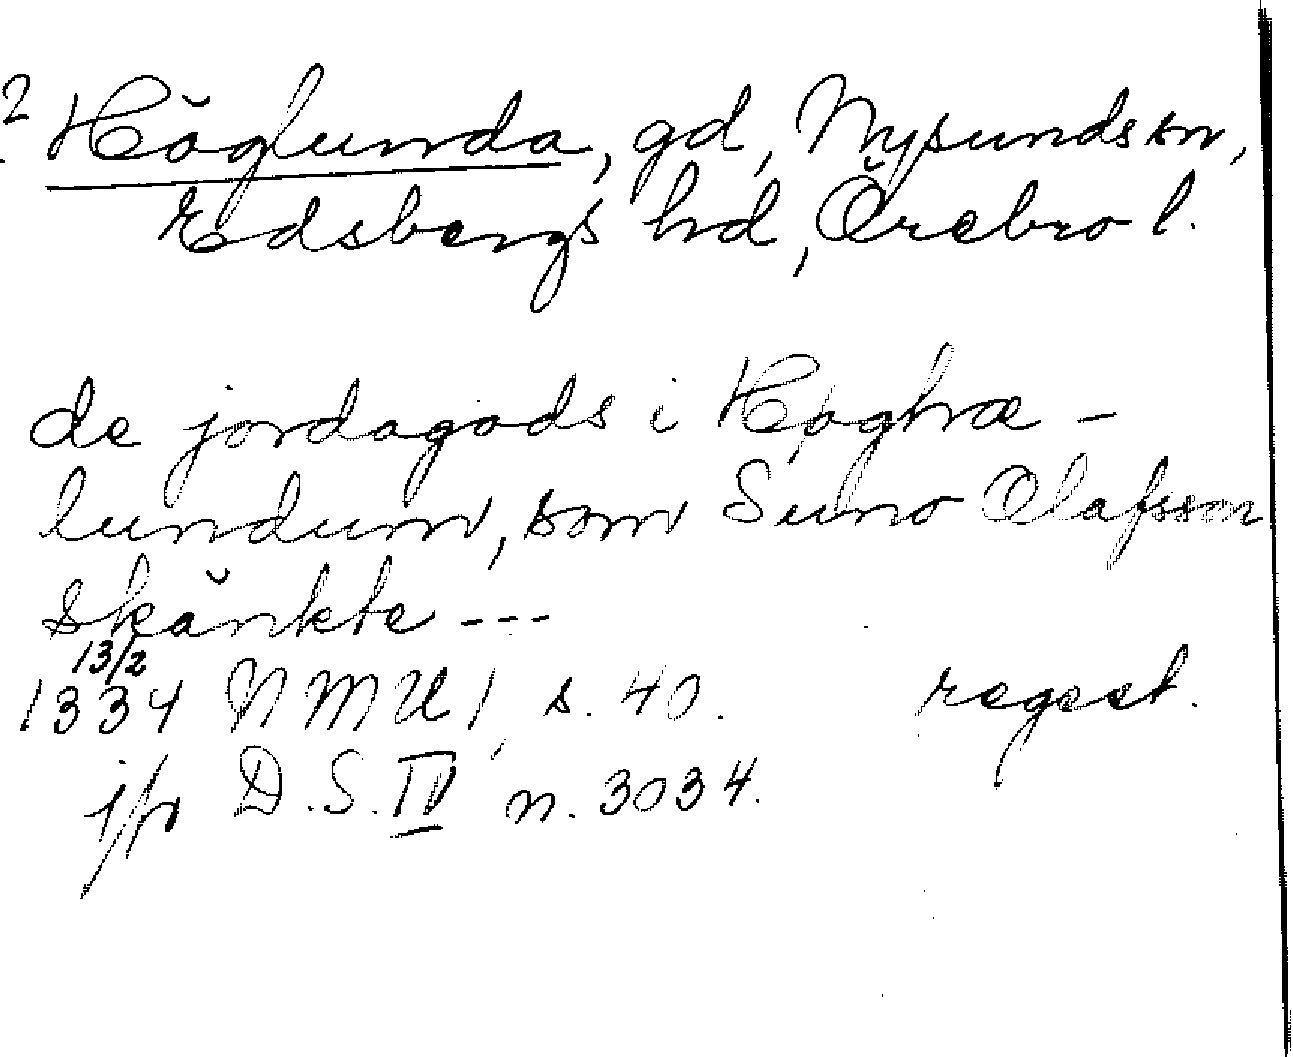 ? Höglunda, gd, Nysunds sn,
Edsbergs hd, Örebro l.
de jordagods i Høghæ-
lundum, som Suno Olafsson
skänkte ---
13/2
1334 NMU 1, s. 40. regest.
jfr D.S. IV n. 3034.